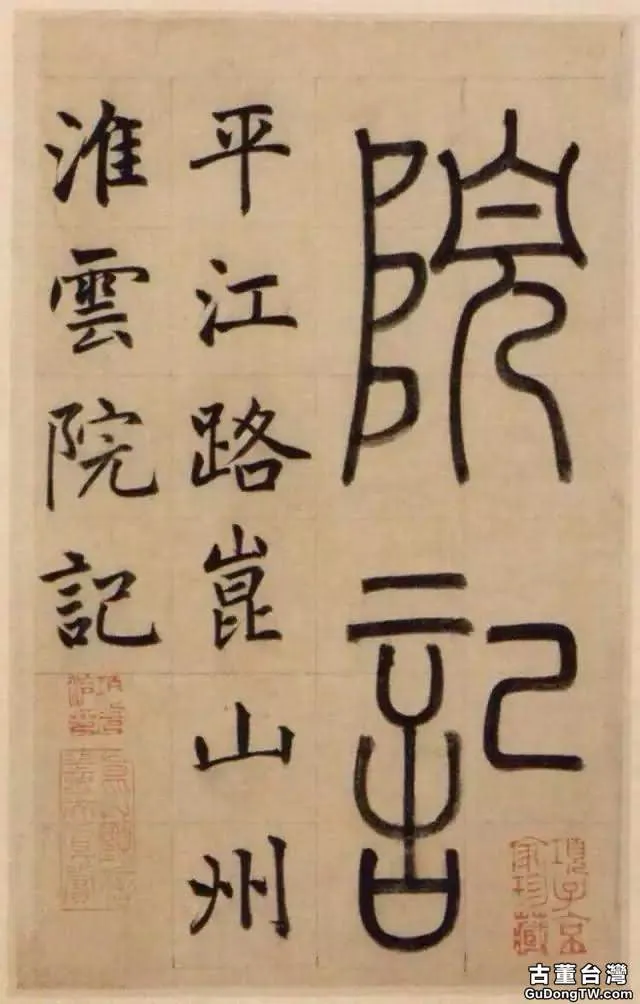 院記
平江路崑山州
淮雲院記
項子京家珍藏
古董台灣
GuDongTW.com